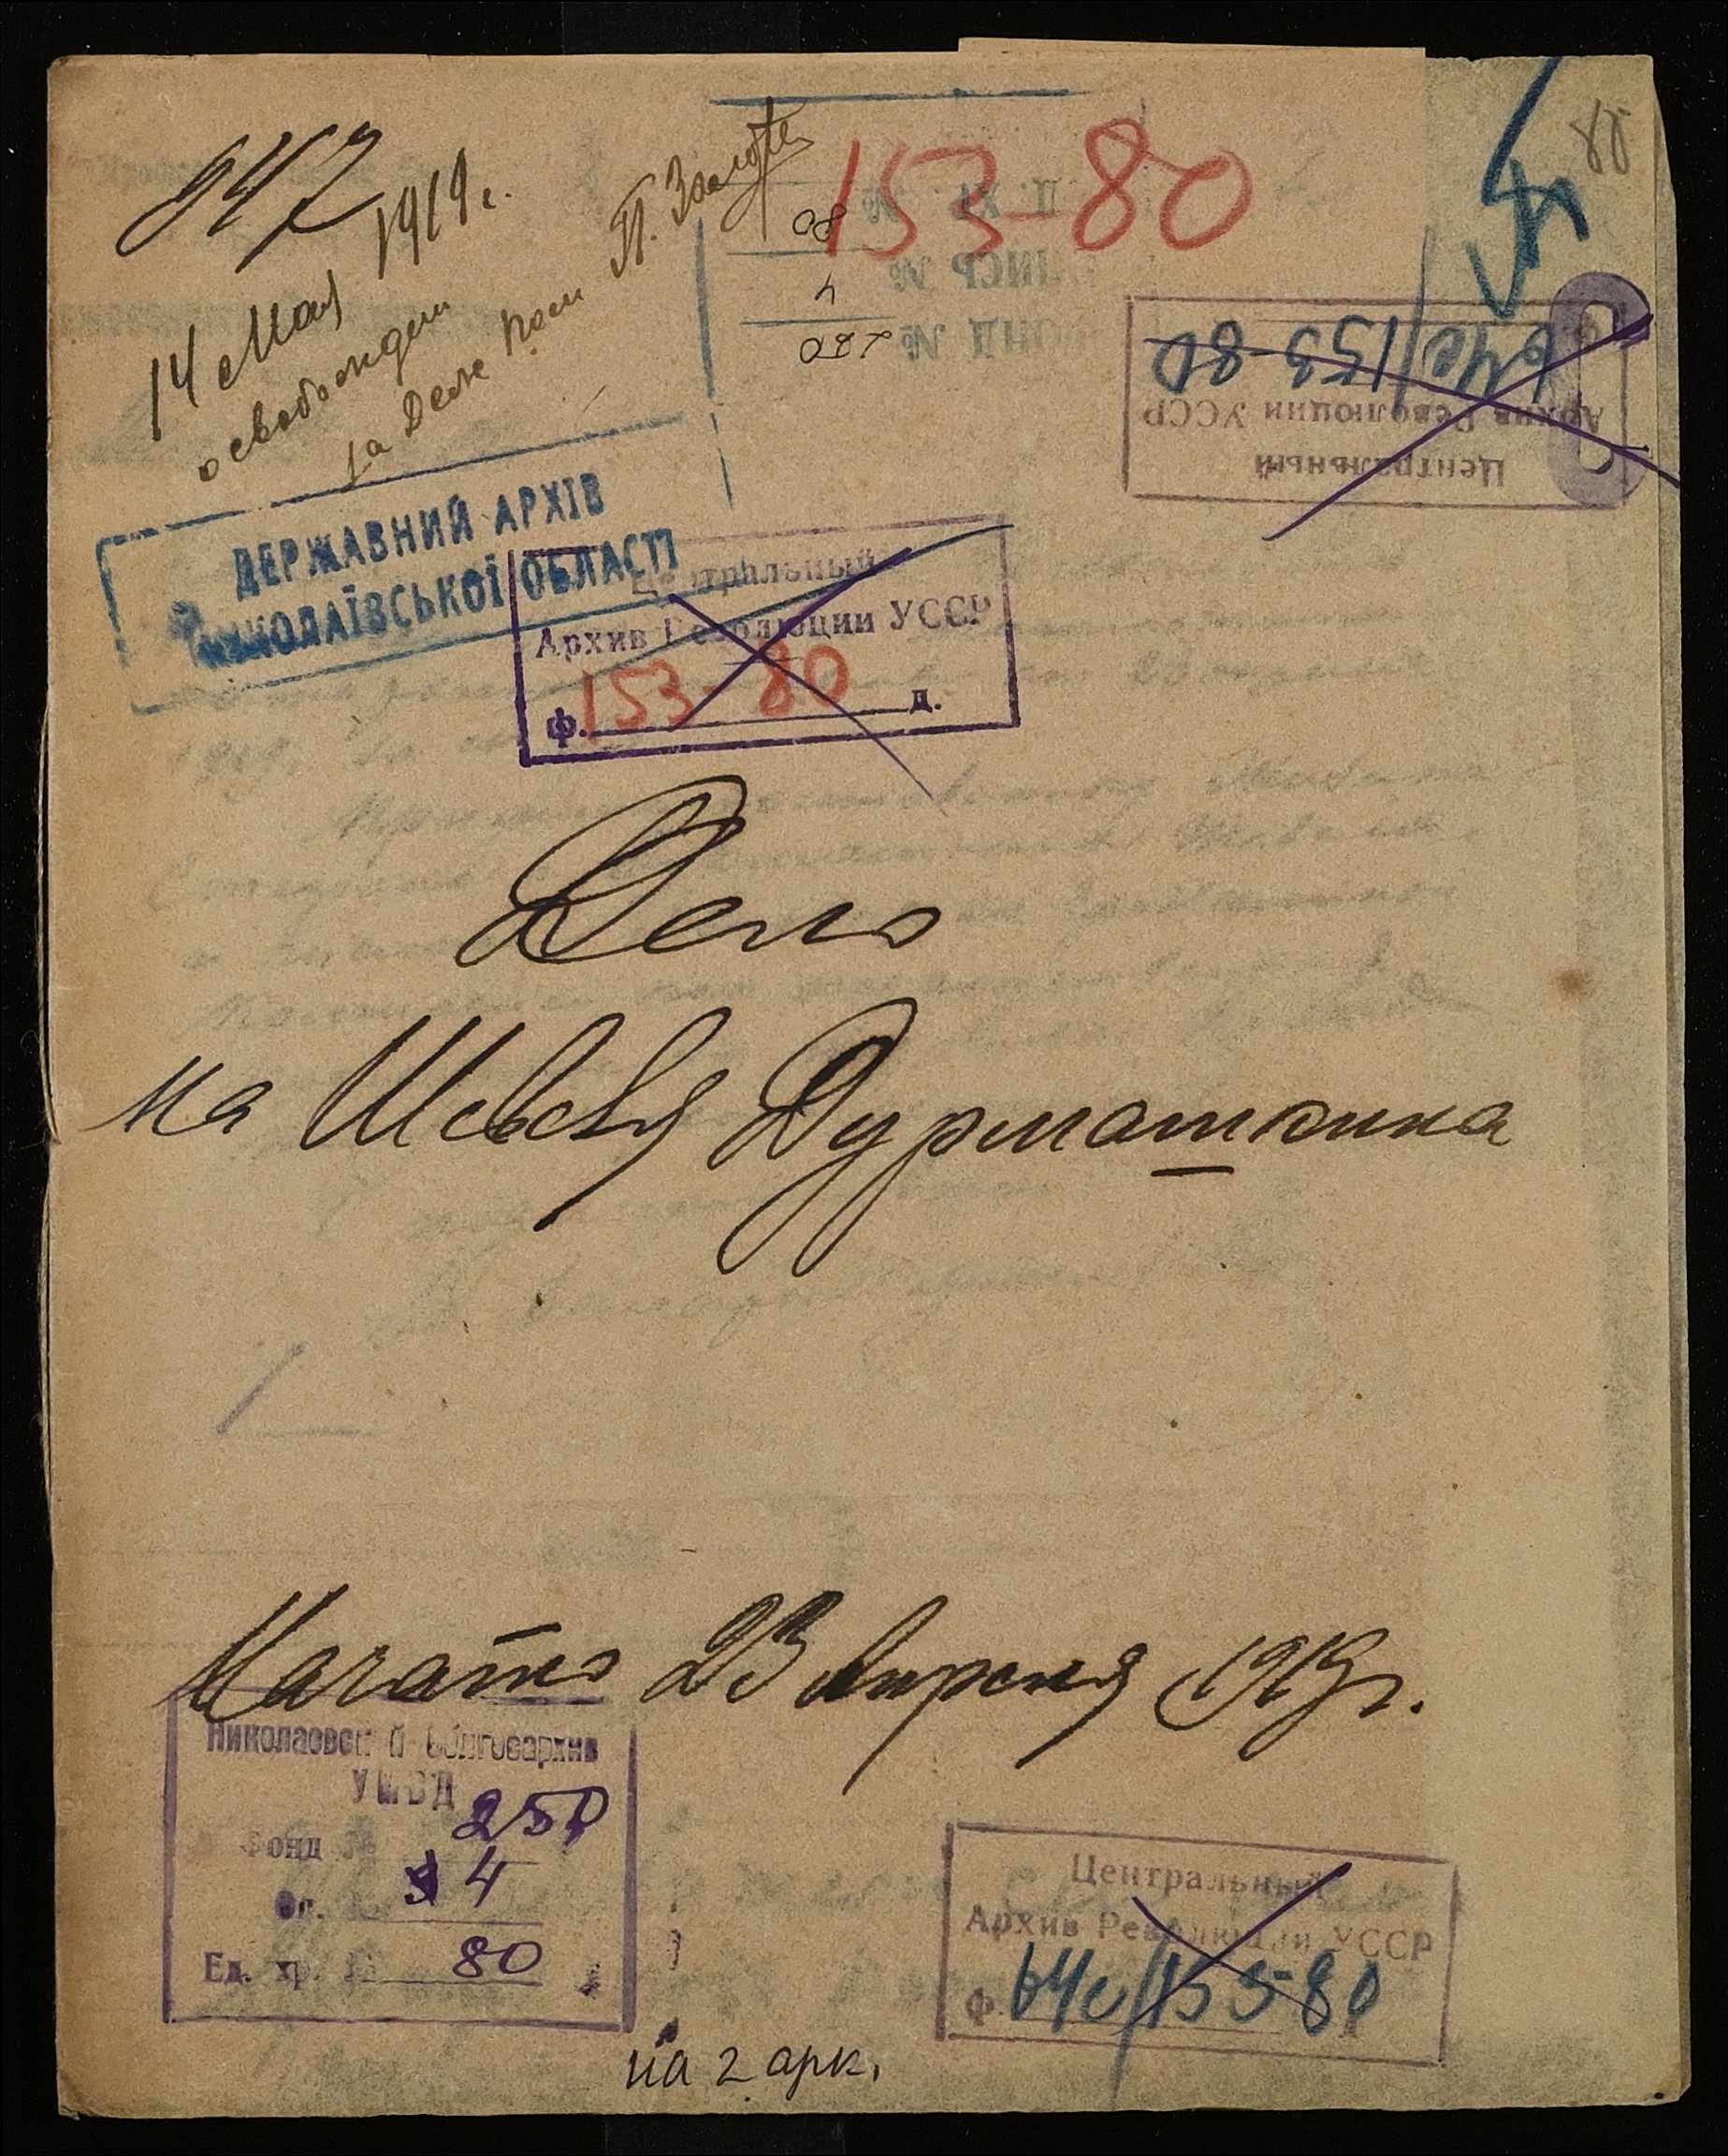 847
14 Мая 1919 г.
освобожден
за Деле
153-80
80
4
280
88
Центральный
Архив Революции УССР
64с/153-80
ДЕРЖАВНИЙ АРХІВ
МИКОЛАЇВСЬКОЇ ОБЛАСТІ
Центральный
Архив Революции УССР
Ф. 153-80 Д.
Дело
на Шевеля Дурмашкина
Начато 23 Апреля 1919 г.
Николаевский Облгосархив
УМВД
Фонд № 250
Оп. 4
Ед. хр. № 80
Центральный
Архив Революции УССР
Ф. 64с/153-80
на 2 арк.